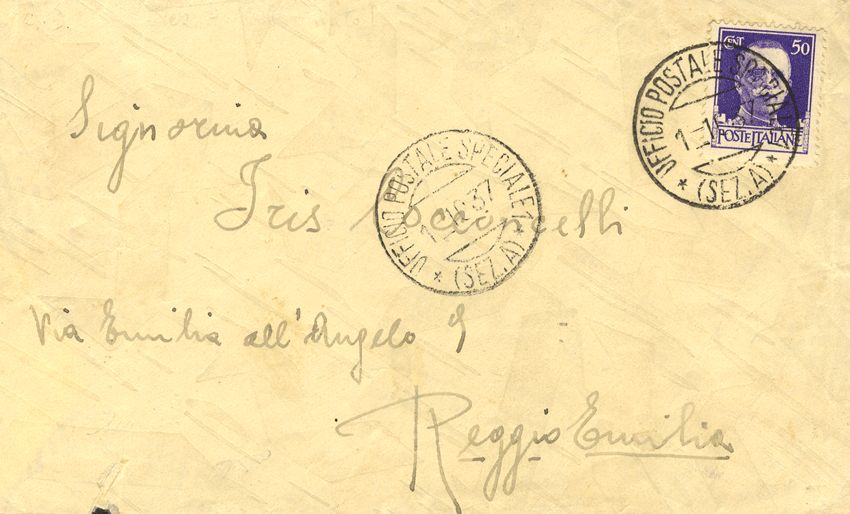 CENT 50
POSTE ITALIANE
UFFICIO POSTALE SPECIALE
* (SEZ.A) *
Signorina
UFFICIO POSTALE SPECIALE 7
37
* (SEZ.A) *
Iris
Via Emilia all'Angelo 9
Reggio Emilia